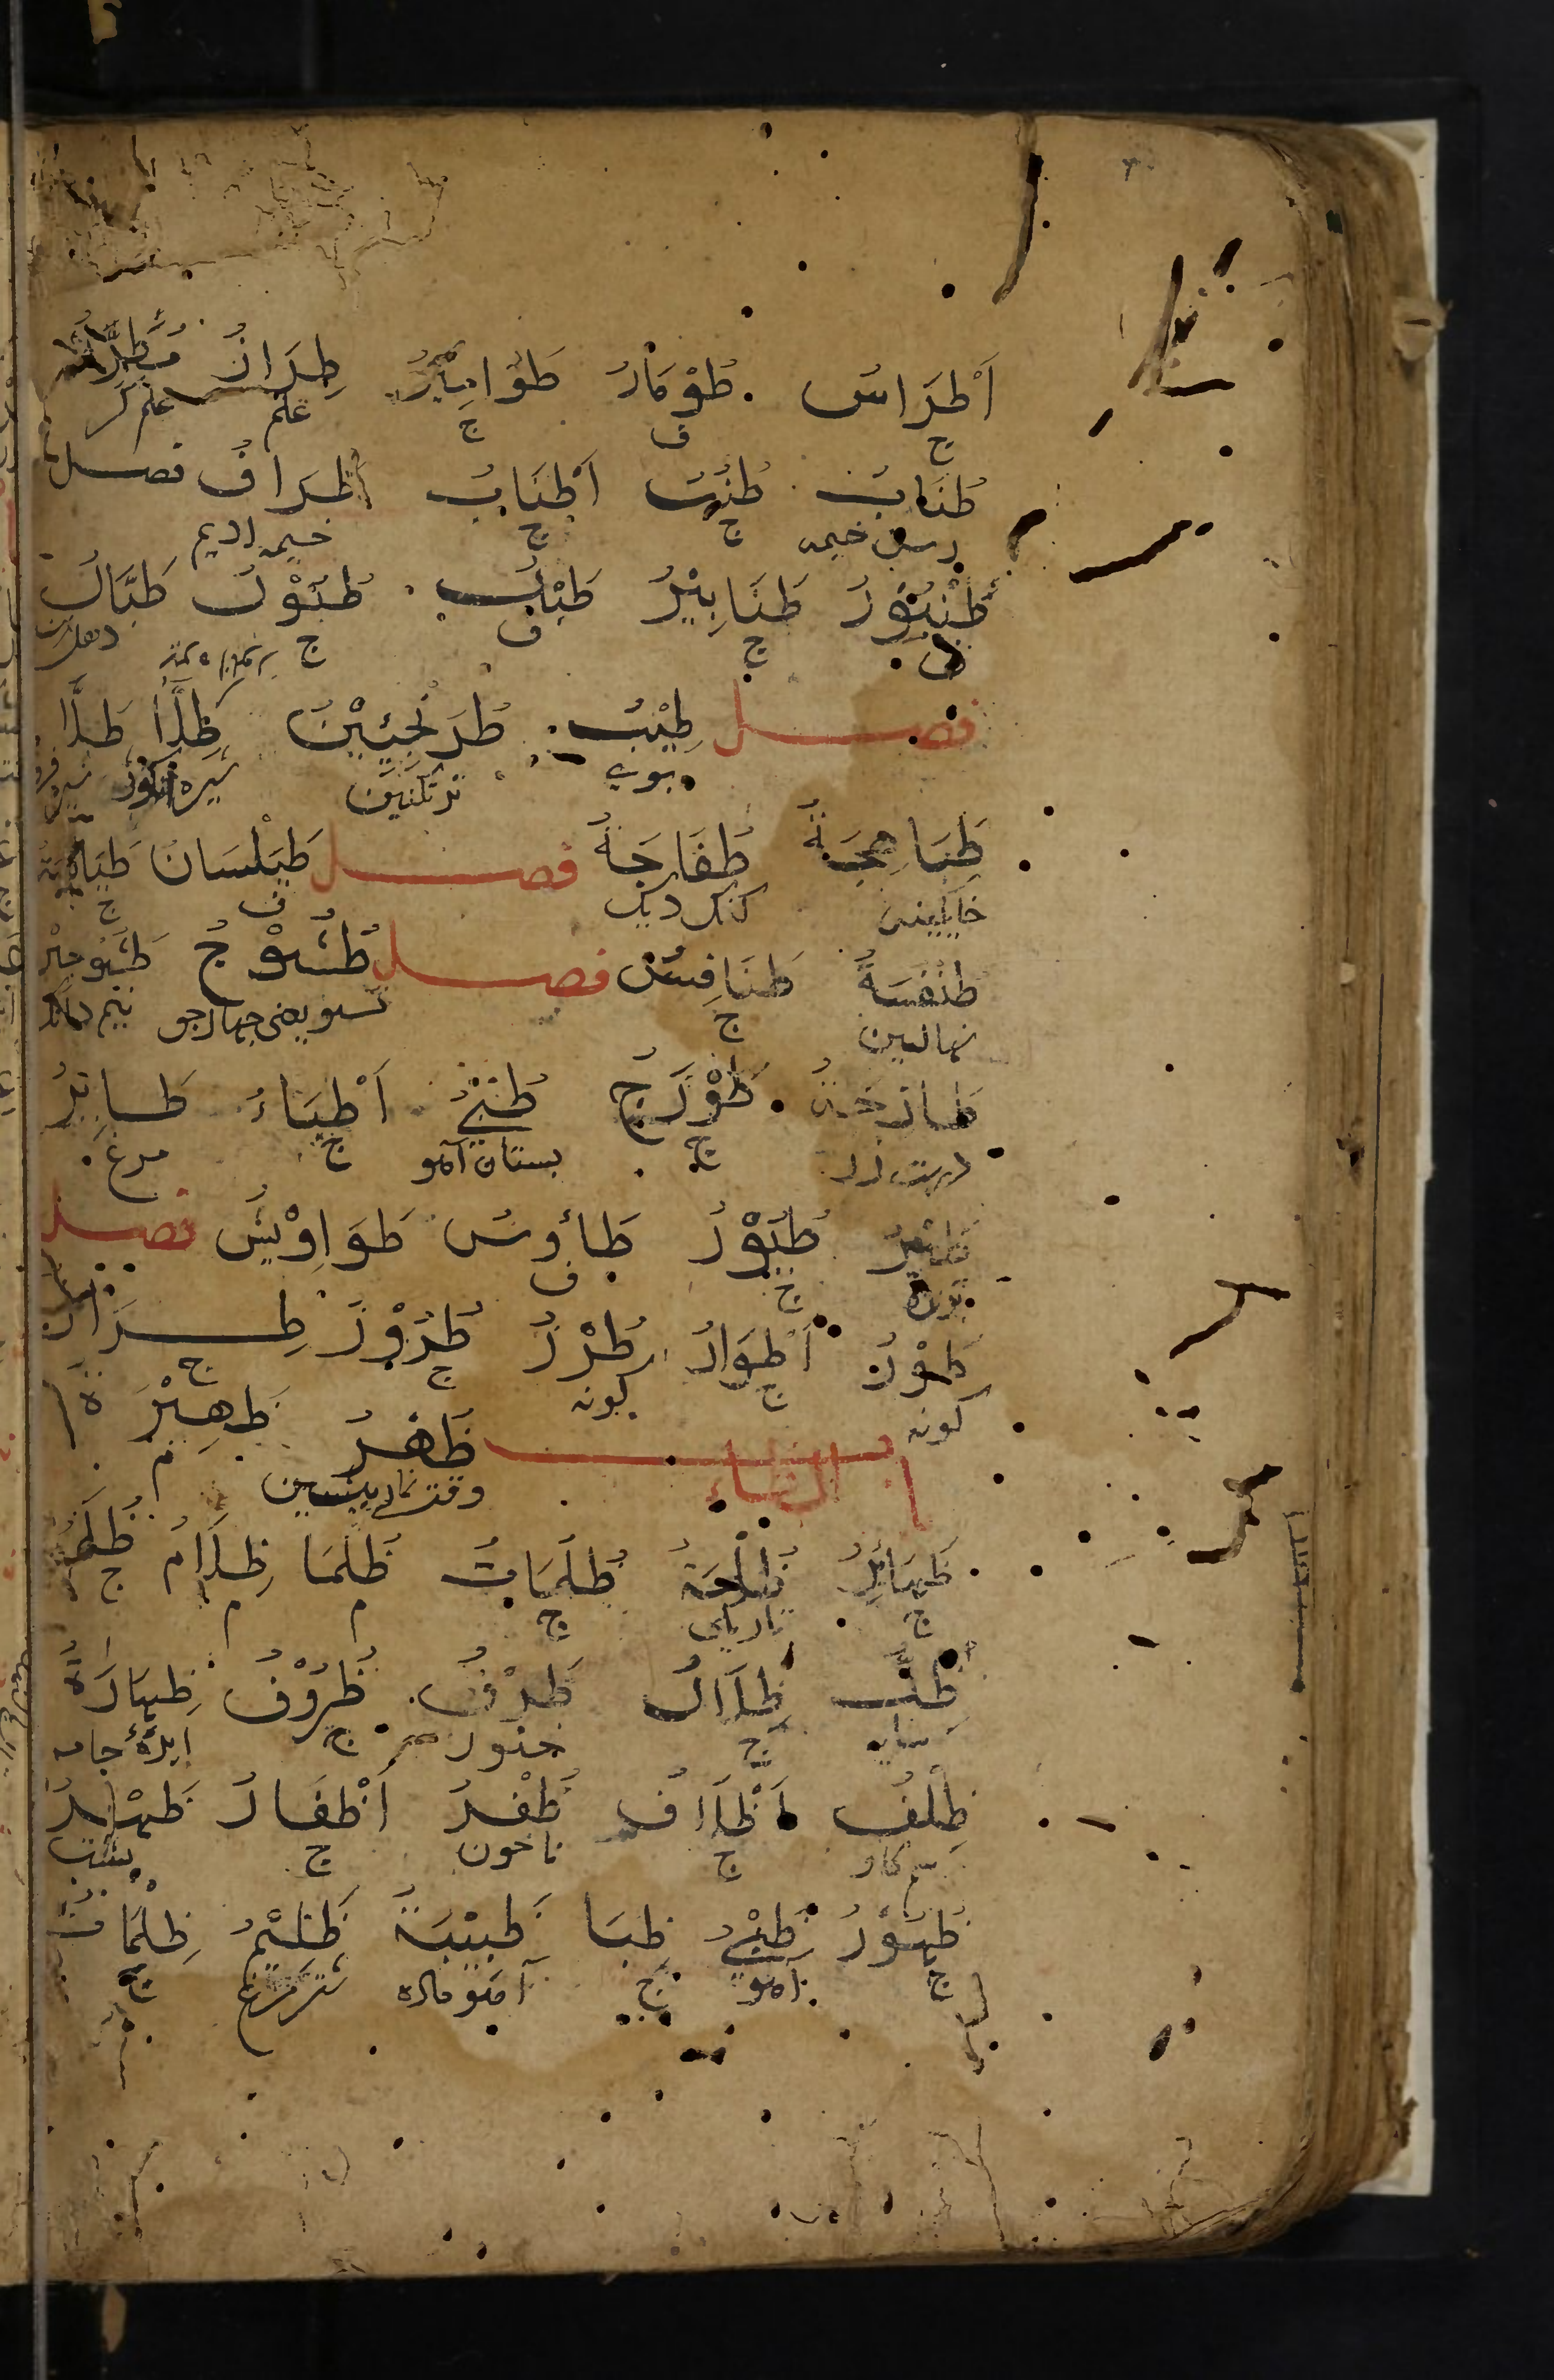 اَطْرَاسٌ طُوْمَارٌ طَوَامِيْرُ طِرَازٌ مُطَرِّزٌ
ج ف ج علم علم گر
طُنَابٌ طُنُبٌ اَطْنَابٌ طِرَافٌ فصل
رسن خیمه ج ج خیمه ادیم
طُنْبُوْرٌ طَنَابِيْرُ طَبْلٌ طُبُوْلٌ طَبَّالٌ
ف ج ف ج
فصل طِيْبٌ طَرَنْجُبِيْنٌ طِلَاً طَلَّا
بوی ترنگبین شیره انگور
طَبَاهِجَةٌ طَفَارجَةٌ فصل طَيْلَسَانٌ
خاگینه ف ج
طِنْفَسَةٌ طَنَافِسُ فصل طَسُّوْجٌ
نهالین ج تسو یعنی چهار جو
طَازَجَةٌ طُبْيٌ اَطْبَاءٌ طَائِرٌ
ج پستان آهو ج مرغ
طَيْرٌ طُيُوْرٌ طَاوُسٌ طَوَاوِيْسُ فصل
ج ف
طَوْرٌ اَطْوَارٌ طَرْزٌ طُرُوْزٌ طِرَازٌ
گونه ج گونه ج ج
باب الظاء ظُهْرٌ ظَهِيْرَةٌ
وقت نماز پیشین م
ظَهَائِرُ ظُلْمَةٌ ظُلُمَاتٌ ظَلْمَا ظِلَامٌ ظُلَمٌ
ج تاریکی ج م م ج
ظِلٌّ ظِلَالٌ ظَرْفٌ ظُرُوْفٌ ظِهَارَةٌ
سایه ج خنور ج ابرهٔ جامه
ظِلْفٌ اَظْلَافٌ ظُفْرٌ اَظْفَارٌ ظَهْرٌ
سم گاو ج ناخون ج پشت
ظُهُوْرٌ ظَبْيٌ ظِبَا ظَبِيْبَةٌ ظَلِيْمٌ ظِلْمَانٌ
ج آهو ج آهو ماده شترمرغ ج